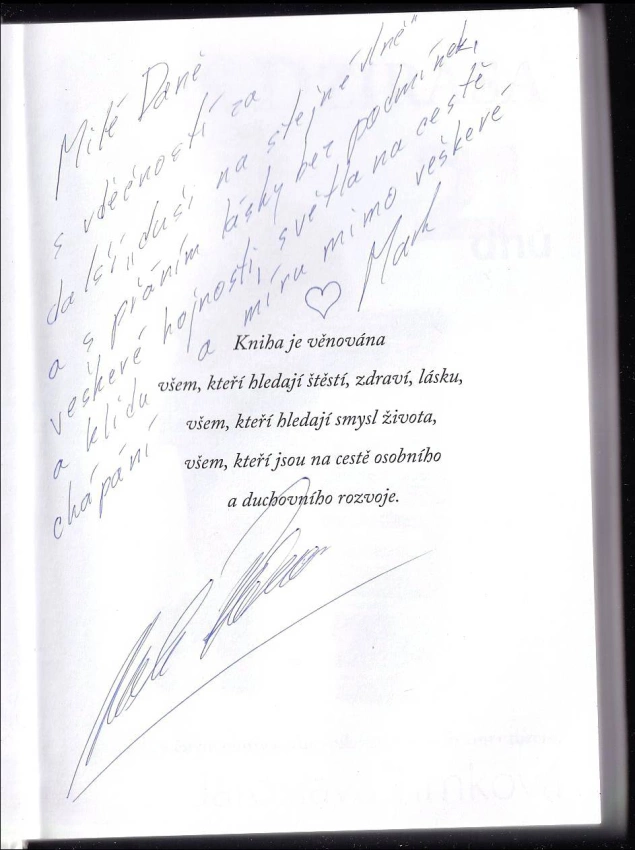 Milé Daně
s vděčností za
další „duši na stejné vlně"
a s přáním lásky bez podmínek,
veškeré hojnosti, světla na cestě
a klidu a míru mimo veškeré
chápání
Mark
Kniha je věnována
všem, kteří hledají štěstí, zdraví, lásku,
všem, kteří hledají smysl života,
všem, kteří jsou na cestě osobního
a duchovního rozvoje.